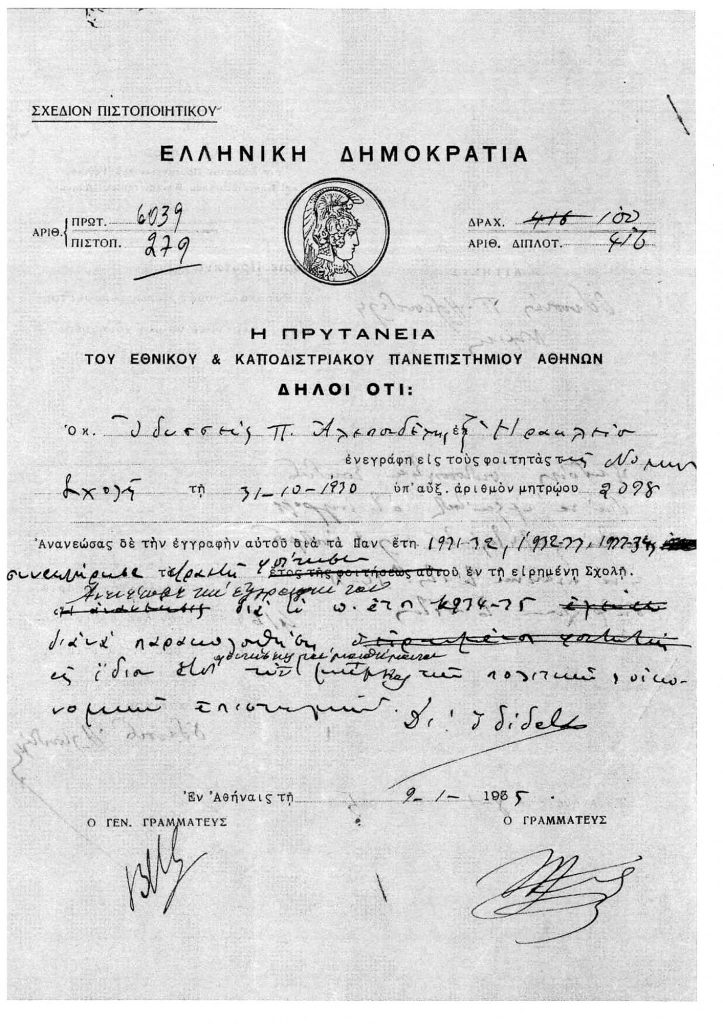 ΣΧΕΔΙΟΝ ΠΙΣΤΟΠΟΙΗΤΙΚΟΥ
ΕΛΛΗΝΙΚΗ ΔΗΜΟΚΡΑΤΙΑ
ΑΡΙΘ. { ΠΡΩΤ. 6039
ΠΙΣΤΟΠ. 279
ΔΡΑΧ. 416 100
ΑΡΙΘ. ΔΙΠΛΟΤ. 416
Η ΠΡΥΤΑΝΕΙΑ
ΤΟΥ ΕΘΝΙΚΟΥ & ΚΑΠΟΔΙΣΤΡΙΑΚΟΥ ΠΑΝΕΠΙΣΤΗΜΙΟΥ ΑΘΗΝΩΝ
ΔΗΛΟΙ ΟΤΙ:
Ὁ κ. Ὀδυσσεὺς Π. Ἀλεπουδέλης ἐξ Ἡρακλείου
ἐνεγράφη εἰς τοὺς φοιτητὰς τῆς Νομικ
Σχολῆς τῇ 31-10-1930 ὑπ' αὔξ. ἀριθμὸν μητρῴου 2098
Ἀνανεώσας δὲ τὴν ἐγγραφὴν αὐτοῦ διὰ τὰ Παν. ἔτη 1931-32, 1932-33, 1933-34,
συνεπλήρωσε τετραετῆ φοίτησιν
ἔτος τῆς φοιτήσεως αὐτοῦ ἐν τῇ εἰρημένῃ Σχολῇ.
Ἀνενέωσε καὶ ἐγγραφὴν του
διὰ τὸ π. ἔτος 1934-35
διὰ νὰ παρακολουθήσῃ
τῆς πολιτικῆς & οἰκο-
νομικῆς ἐπιστήμης.
Ἐν Ἀθήναις τῇ 9-1-1935.
Ο ΓΕΝ. ΓΡΑΜΜΑΤΕΥΣ
Ο ΓΡΑΜΜΑΤΕΥΣ